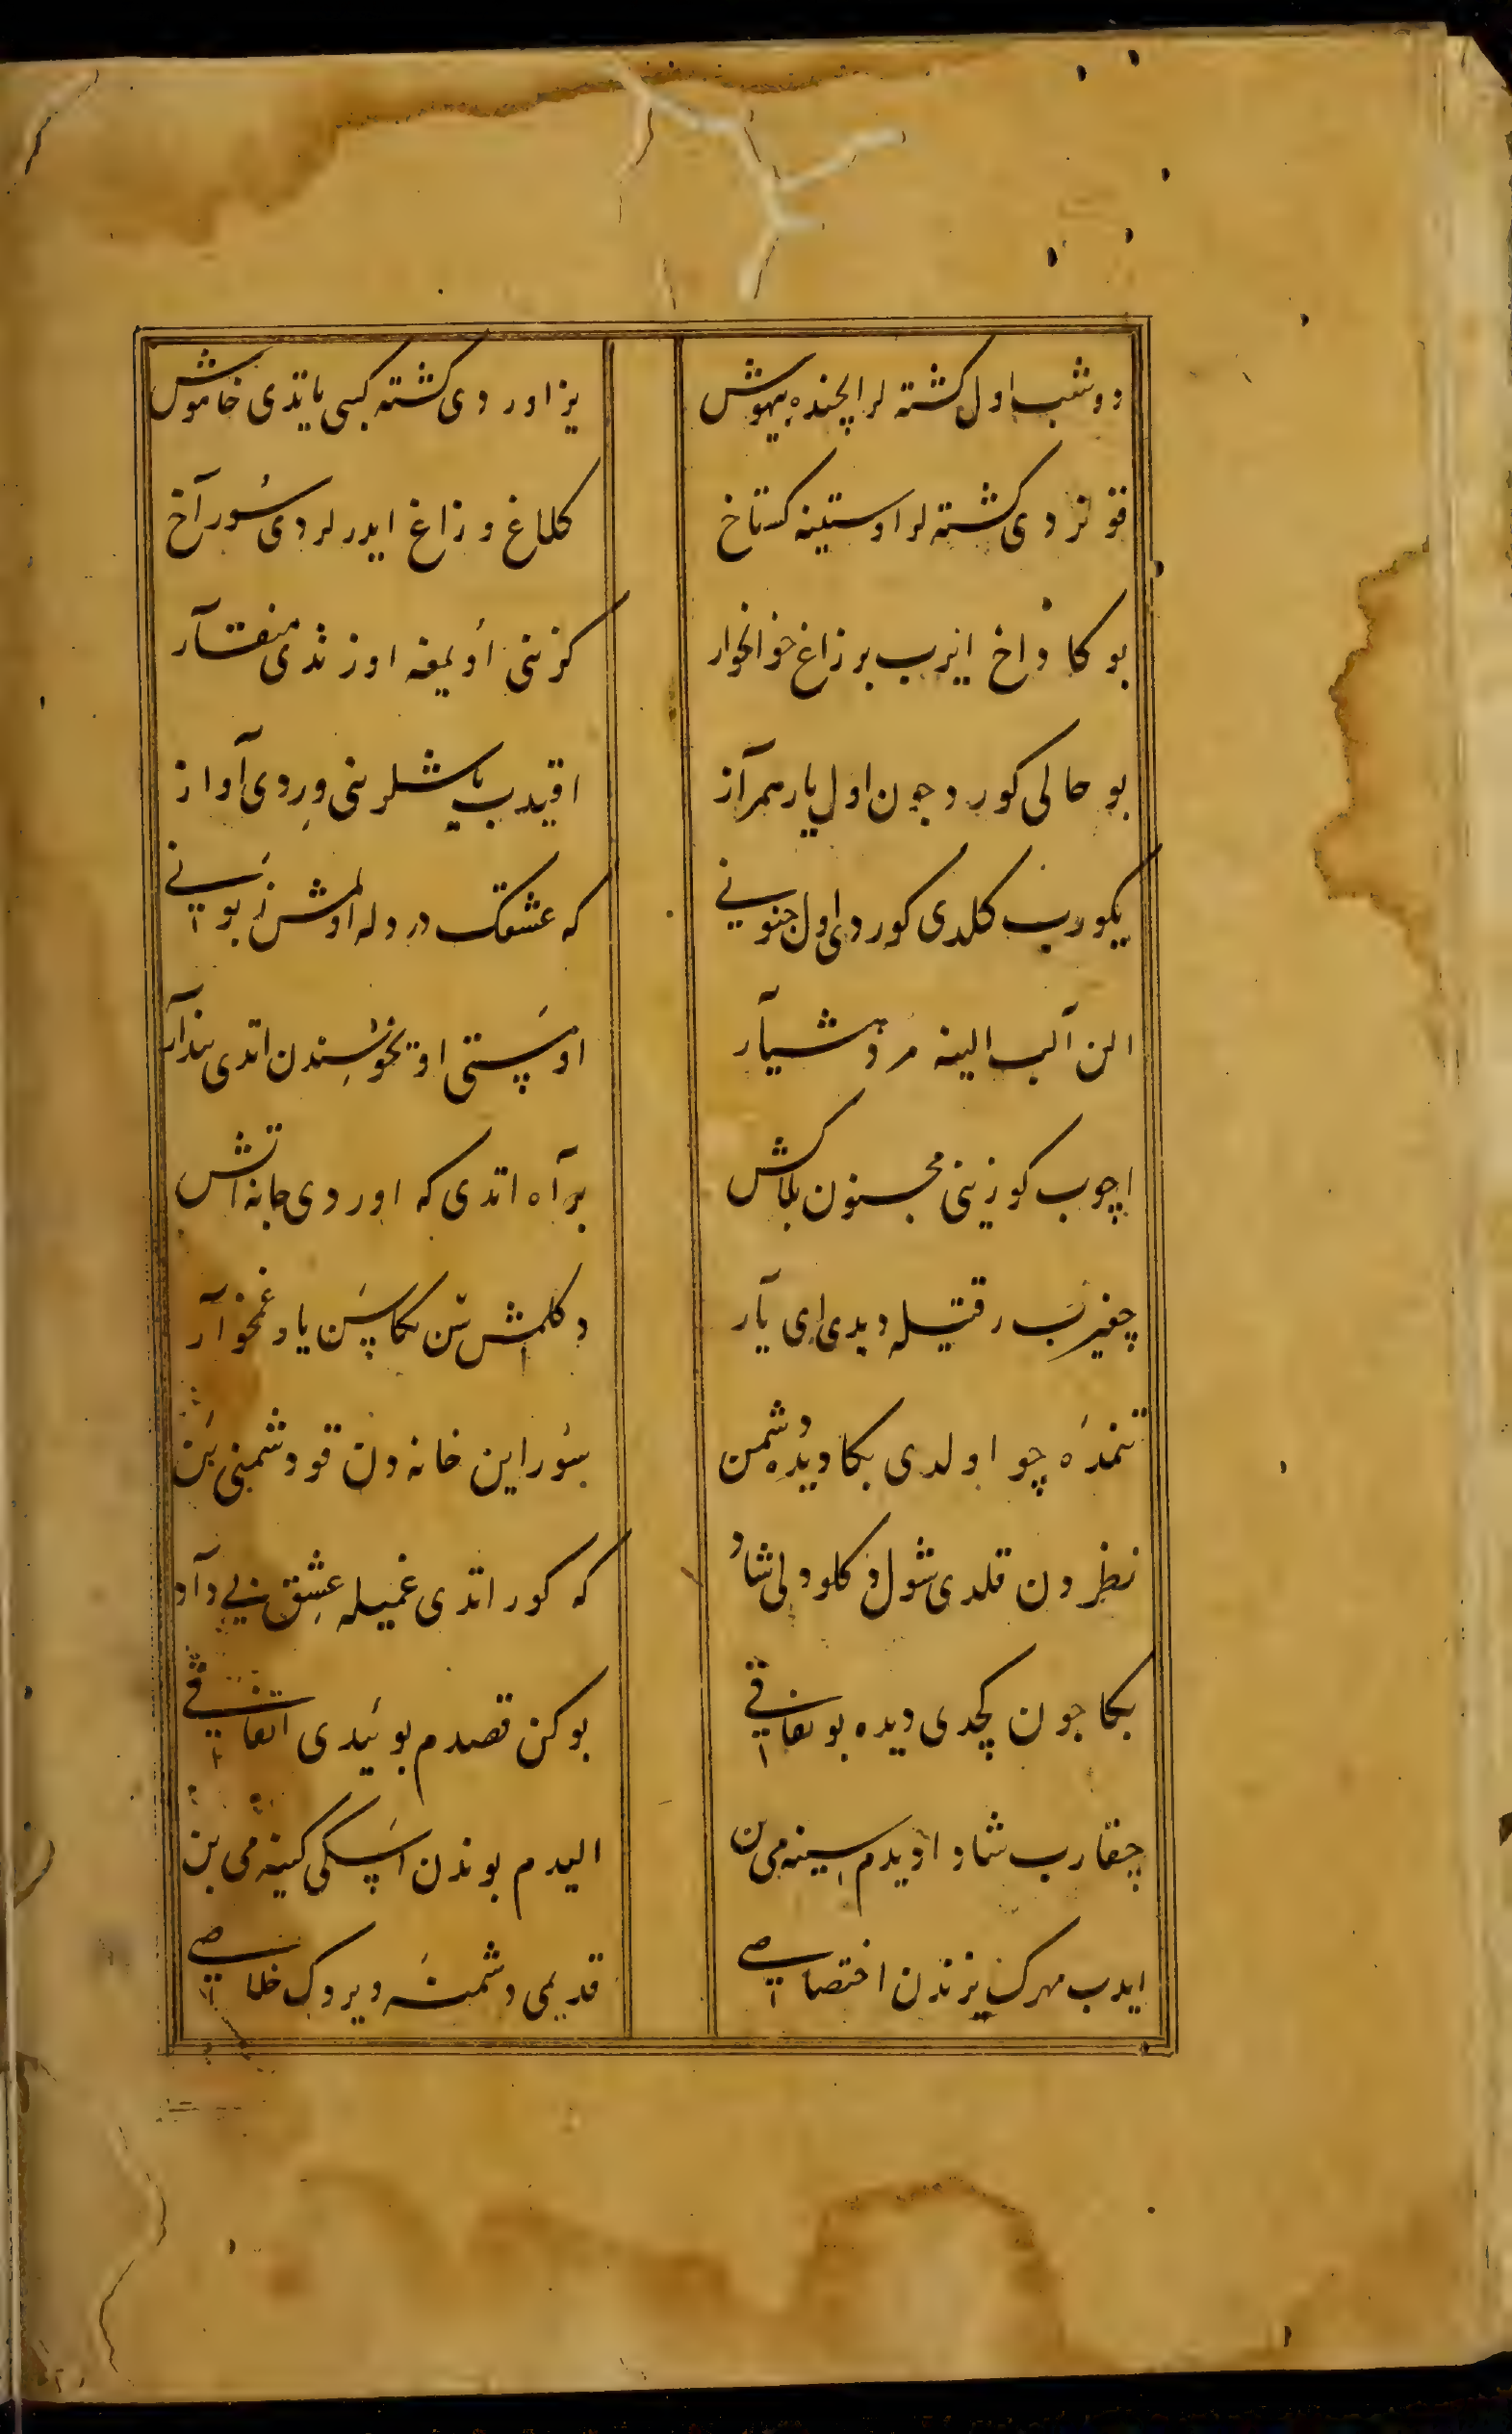 دوشب اول کشته لر ایچنده بیهوش یز اوردی کشته کبی یاتدی خاموش
قونردی کشته لر اوستینه کستاخ کلاغ و زاغ ایدرلردی سوراخ
بو کا واخ ایرب بر زاغ خوانخوار کزنی اویمغه اوزندی منقار
بو حالی کوردجون اول یار همراز اقیدب یاشلرنی وردی آواز
یکورب کلدی کوردی اول جنونی که عشقک دردله اولمش زبونی
الن آلب الینه مرد هشیار اوپستی اوتخوسندن اتدی بندار
اچوب کوزینی مجنون بلاکش بر آه اتدی که اوردی جانه اتش
چغیرب رقتیله دیدی ای یار دکلمش سن بکا پسن یار غمخوار
تنمده چو اولدی بکا دیده دشمن سور این خانه دن قو دشمنی بن
نظردن قلدی شول دکلو دلی شاد که کور اتدی غمیله عشق بیداد
بکا جون کچدی دیده بو نفاقی بوکن قصدم بوئیدی اتفاقی
چقارب شاد اویدم سینه می بن الیدم بوندن اسکی کینه می بن
ایدب مهرک یزندن اختصاصی قدیمی دشمنه ویردک خلاصی